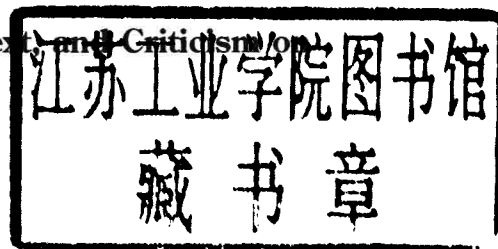 xt, and Criticism on
江苏工业学院图书馆
藏书章